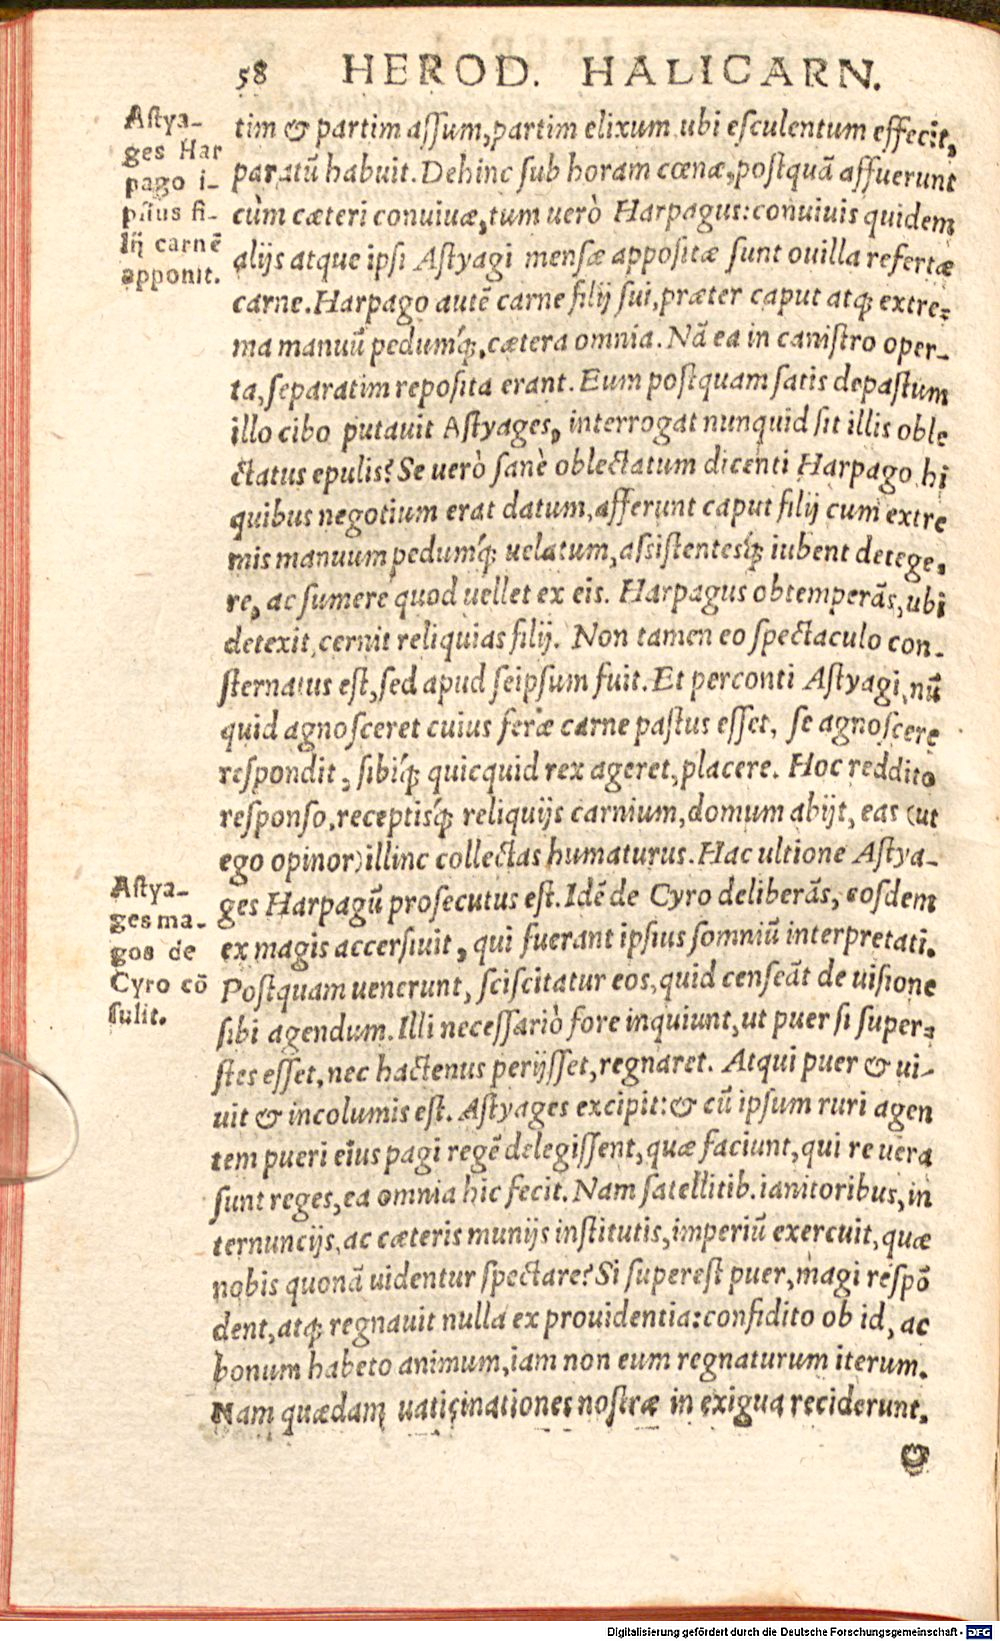 58 HEROD. HALICARN.
Astya-
ges Har
pago i-
psius fi-
lij carnē
apponit.
tim & partim assum, partim elixum ubi esculentum effecit,
paratū habuit. Dehinc sub horam cœnæ, postquā affuerunt
cùm cæteri conuiuæ, tum uerò Harpagus: conuiuis quidem
alijs atque ipsi Astyagi mensæ appositæ sunt ouilla refertæ
carne. Harpago autē carne filij sui, præter caput atq; extre-
ma manuū pedumq́;, cætera omnia. Nā ea in canistro oper-
ta, separatim reposita erant. Eum postquam satis depastum
illo cibo putauit Astyages, interrogat nunquid sit illis oble
ctatus epulis? Se uerò sanè oblectatum dicenti Harpago hi
quibus negotium erat datum, afferunt caput filij cum extre
mis manuum pedumq́; uelatum, assistentesq́; iubent detege-
re, ac sumere quod uellet ex eis. Harpagus obtemperās, ubi
detexit, cernit reliquias filij. Non tamen eo spectaculo con-
sternatus est, sed apud seipsum fuit. Et perconti Astyagi, nū
quid agnosceret cuius feræ carne pastus esset, se agnoscere
respondit, sibiq́; quicquid rex ageret, placere. Hoc reddito
responso, receptisq́; reliquijs carnium, domum abijt, eas (ut
ego opinor) illinc collectas humaturus. Hac ultione Astya-
ges Harpagū prosecutus est. Idē de Cyro deliberās, eosdem
ex magis accersiuit, qui fuerant ipsius somniū interpretati.
Astya-
ges ma-
gos de
Cyro cō
sulit.
Postquam uenerunt, sciscitatur eos, quid censeāt de uisione
sibi agendum. Illi necessariò fore inquiunt, ut puer si super-
stes esset, nec hactenus perijsset, regnaret. Atqui puer & ui-
uit & incolumis est. Astyages excipit: & cū ipsum ruri agen
tem pueri eius pagi regē delegissent, quæ faciunt, qui re uera
sunt reges, ea omnia hic fecit. Nam satellitib. ianitoribus, in
ternuncijs, ac cæteris munijs institutis, imperiū exercuit, quæ
nobis quonā uidentur spectare? Si superest puer, magi respō
dent, atq; regnauit nulla ex prouidentia: confidito ob id, ac
bonum habeto animum, iam non eum regnaturum iterum.
Nam quædam uaticinationes nostræ in exigua reciderunt,
&
Digitalisierung gefördert durch die Deutsche Forschungsgemeinschaft - DFG